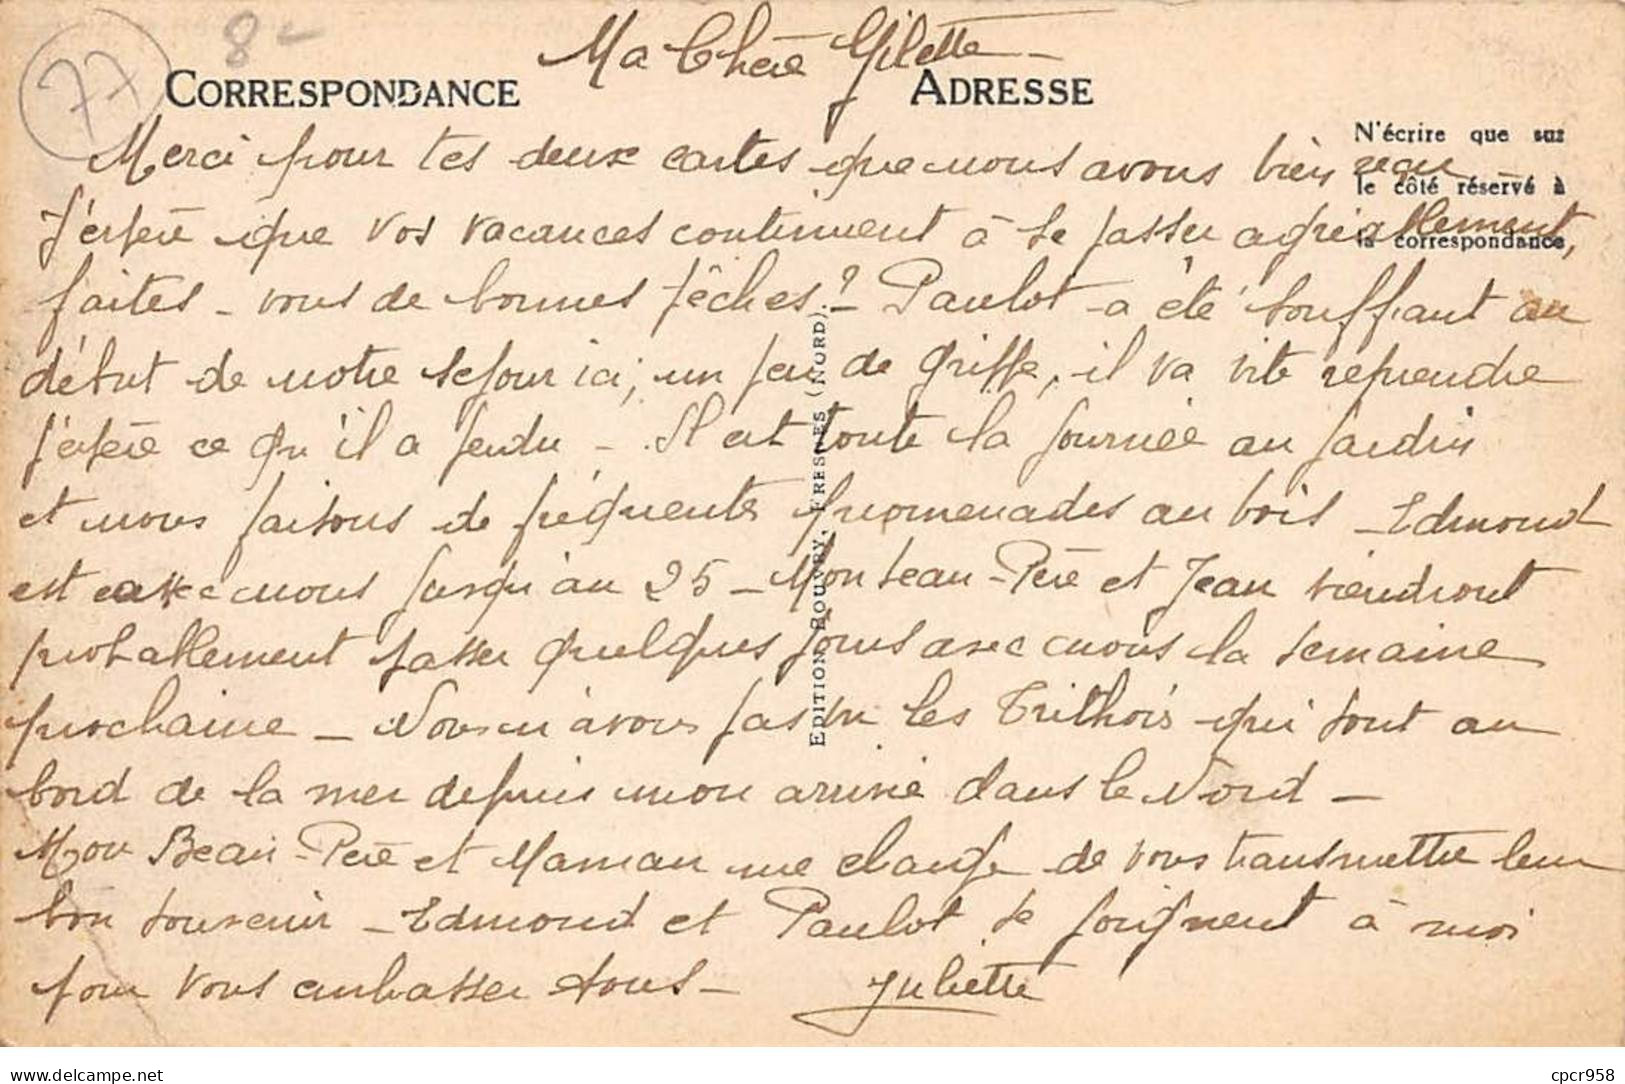 77
8-
Ma Chère Gilette
CORRESPONDANCE
ADRESSE
N'écrire que sur
le côté réservé à
la correspondance
Merci pour tes deux cartes que nous avons bien reçu
J'espère que vos vacances continuent à se passer agréablement,
faites-vous de bonnes pêches? - Paulot a été souffrant au
début de notre séjour ici, un peu de grippe, il va vite reprendre
j'espère ce qu'il a perdu - Il est toute la journée au jardin
et nous faisons de fréquentes promenades au bois - Edmond
est avec nous jusqu'au 25 - Mon beau-Père et Jean viendront
probablement passer quelques jours avec nous la semaine
prochaine - Nous n'avons pas vu les qui sont au
bord de la mer depuis mon arrivé dans le Nord -
Mon Beau-Père et Maman me charge de vous transmettre leur
bon souvenir - Edmond et Paulot se joignent à moi
pour vous embasser tous -
Juliette
EDITION ROUVRY, FRESNES (NORD).
Delcampe.net
cpcr958